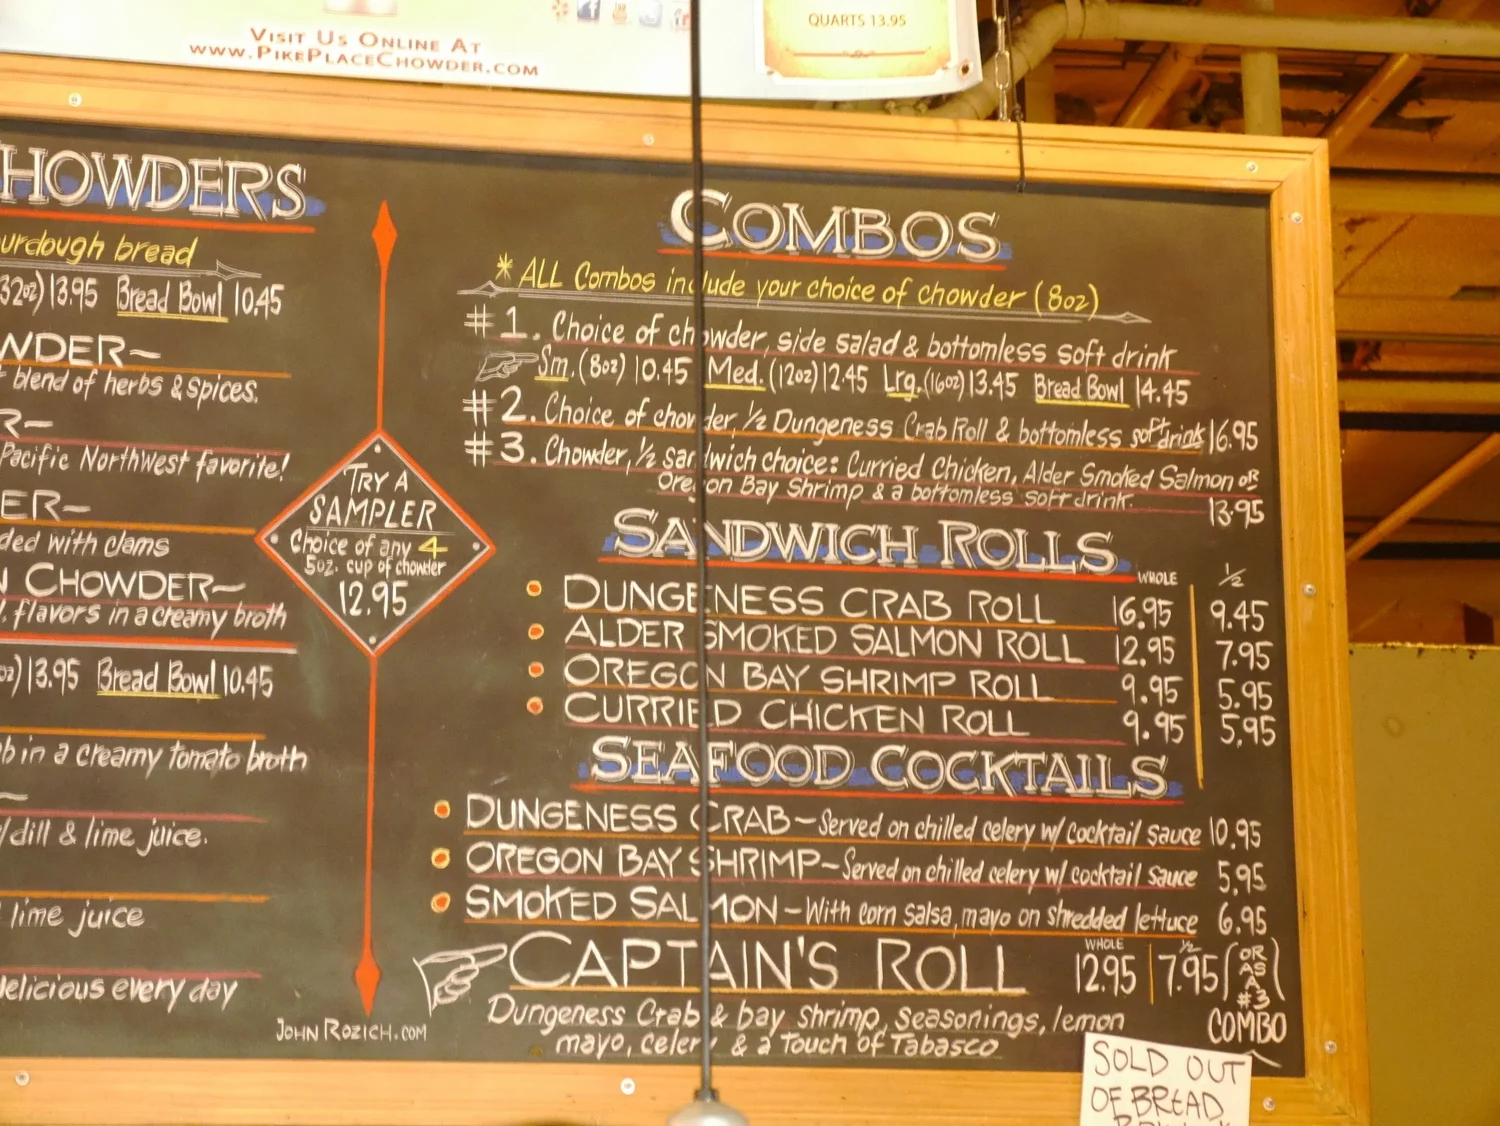 VISIT US ONLINE AT
WWW.PIKEPLACECHOWDER.COM
QUARTS 13.95
HOWDERS
urdough bread
32oz) 13.95 Bread Bowl 10.45
WDER~
blend of herbs & spices.
R~
Pacific Northwest favorite!
ER~
ded with clams
N CHOWDER~
flavors in a creamy broth
oz) 13.95 Bread Bowl 10.45
b in a creamy tomato broth
~
/dill & lime juice.
lime juice
delicious every day
TRY A
SAMPLER
Choice of any 4
5oz. cup of chowder
12.95
JOHN ROZICH.COM
COMBOS
* ALL Combos include your choice of chowder (8oz)
#1. Choice of chowder, side salad & bottomless soft drink
Sm. (8oz) 10.45 Med. (12oz) 12.45 Lrg. (16oz) 13.45 Bread Bowl 14.45
#2. Choice of chowder, 1/2 Dungeness Crab Roll & bottomless soft drink 16.95
#3. Chowder, 1/2 sandwich choice: Curried Chicken, Alder Smoked Salmon or
Oregon Bay Shrimp & a bottomless soft drink. 13.95
SANDWICH ROLLS
WHOLE 1/2
DUNGENESS CRAB ROLL 16.95 9.45
ALDER SMOKED SALMON ROLL 12.95 7.95
OREGON BAY SHRIMP ROLL 9.95 5.95
CURRIED CHICKEN ROLL 9.95 5.95
SEAFOOD COCKTAILS
DUNGENESS CRAB~Served on chilled celery w/ cocktail sauce 10.95
OREGON BAY SHRIMP~Served on chilled celery w/ cocktail sauce 5.95
SMOKED SALMON~With corn salsa, mayo on shredded lettuce 6.95
WHOLE 1/2
CAPTAIN'S ROLL 12.95 7.95 (OR AS A #3) COMBO
Dungeness Crab & bay shrimp, seasonings, lemon
mayo, celery & a Touch of Tabasco
SOLD OUT
OF BREAD